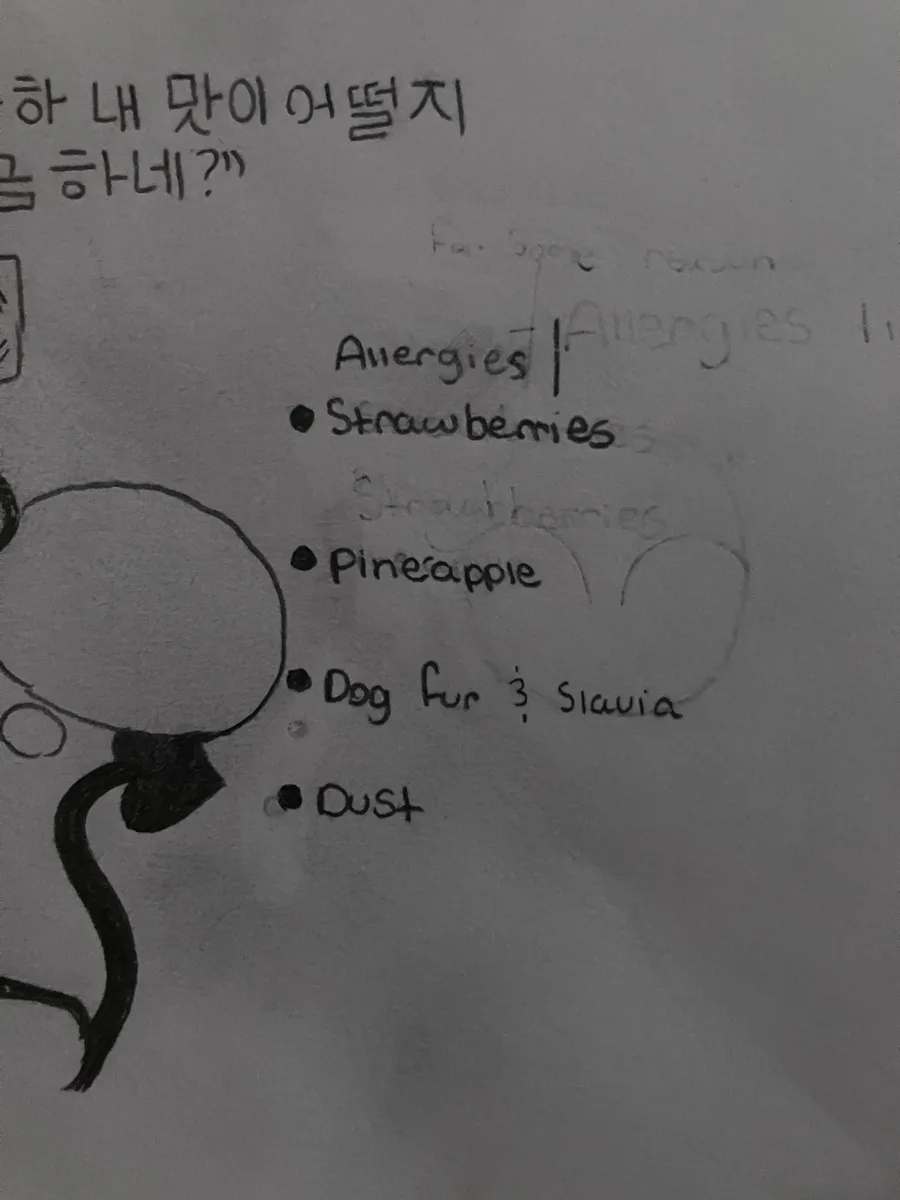 하 내 맛이 어떨지
금 하네?"
For some reason
Allergies
Allergies
• Strawberries
Strawberries
• Pineapple
• Dog fur & Slavia
• Dust